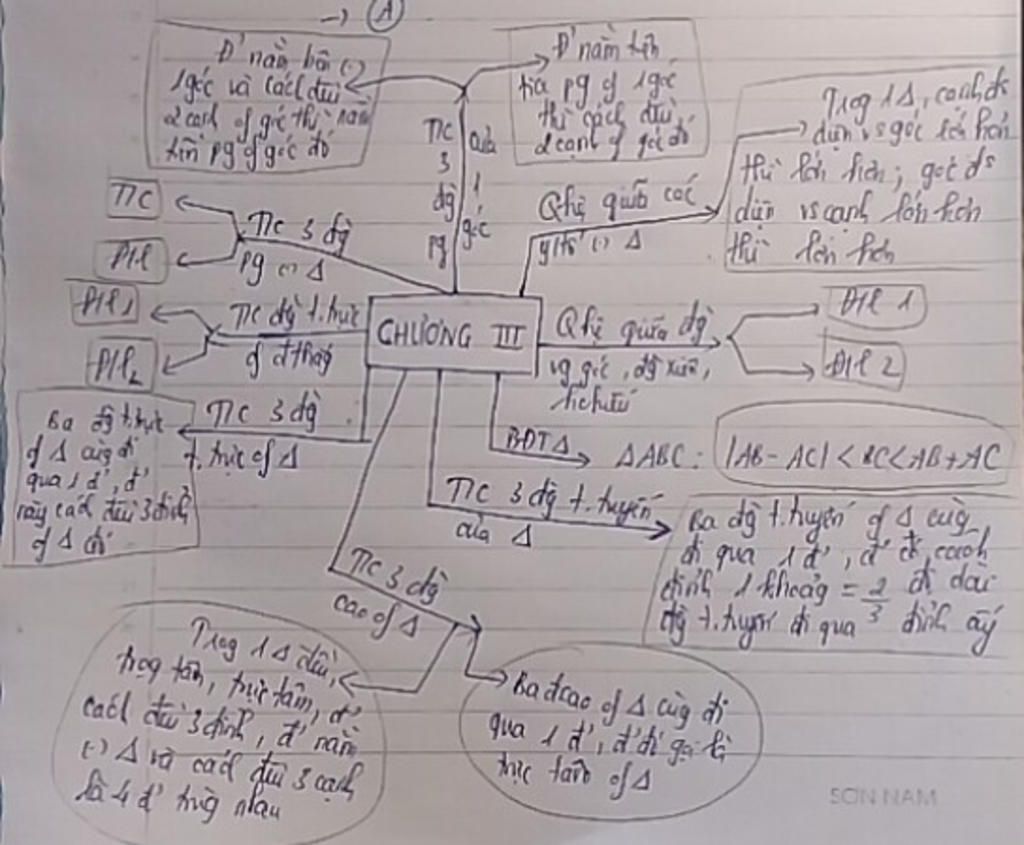 → A
Đ' nằm bên (·)
1 góc và cách đều
2 cạnh of góc thì nằm
trên pg of góc đó
Đ' nằm trên
tia pg of 1 góc
thì cách đều
2 cạnh of góc đó
T/C
3
đg
pg
của
1
góc
Trog 1 Δ, cạnh đs
diện vs góc lớn hơn
thì lớn hơn; góc đs
diện vs cạnh lớn hơn
thì lớn hơn
Qhệ giữa các
yếu tố (·) Δ
T/C
T/C 3 đg
pg (·) Δ
Đ/L
Đ/L 1
T/C đg t.trực
of đ thẳg
Đ/L 2
CHƯƠNG III
Qhệ giữa đg
vg góc, đg xiên,
Đ/L 1
Đ/L 2
Ba đg t.trực
of Δ cùg đi
qua 1 đ', đ'
này cách đều 3 đỉnh
of Δ đó
T/C 3 đg
t.trực of Δ
BĐT Δ
ΔABC: |AB - AC| < BC < AB + AC
T/C 3 đg t.tuyến
của Δ
Ba đg t.tuyến of Δ cùg
đi qua 1 đ', đ' đó cách
đỉnh 1 khoảg = 2/3 độ dài
đg t.tuyến đi qua đỉnh ấy
T/C 3 đg
cao of Δ
Trog 1 Δ đều,
trọg tâm, trực tâm, đ'
cách đều 3 đỉnh, đ' nằm
(·) Δ và cách đều 3 cạnh
là 4 đ' trùg nhau
Ba đ cao of Δ cùg đi
qua 1 đ', đ' đó gọi là
trực tâm of Δ
SON NAM